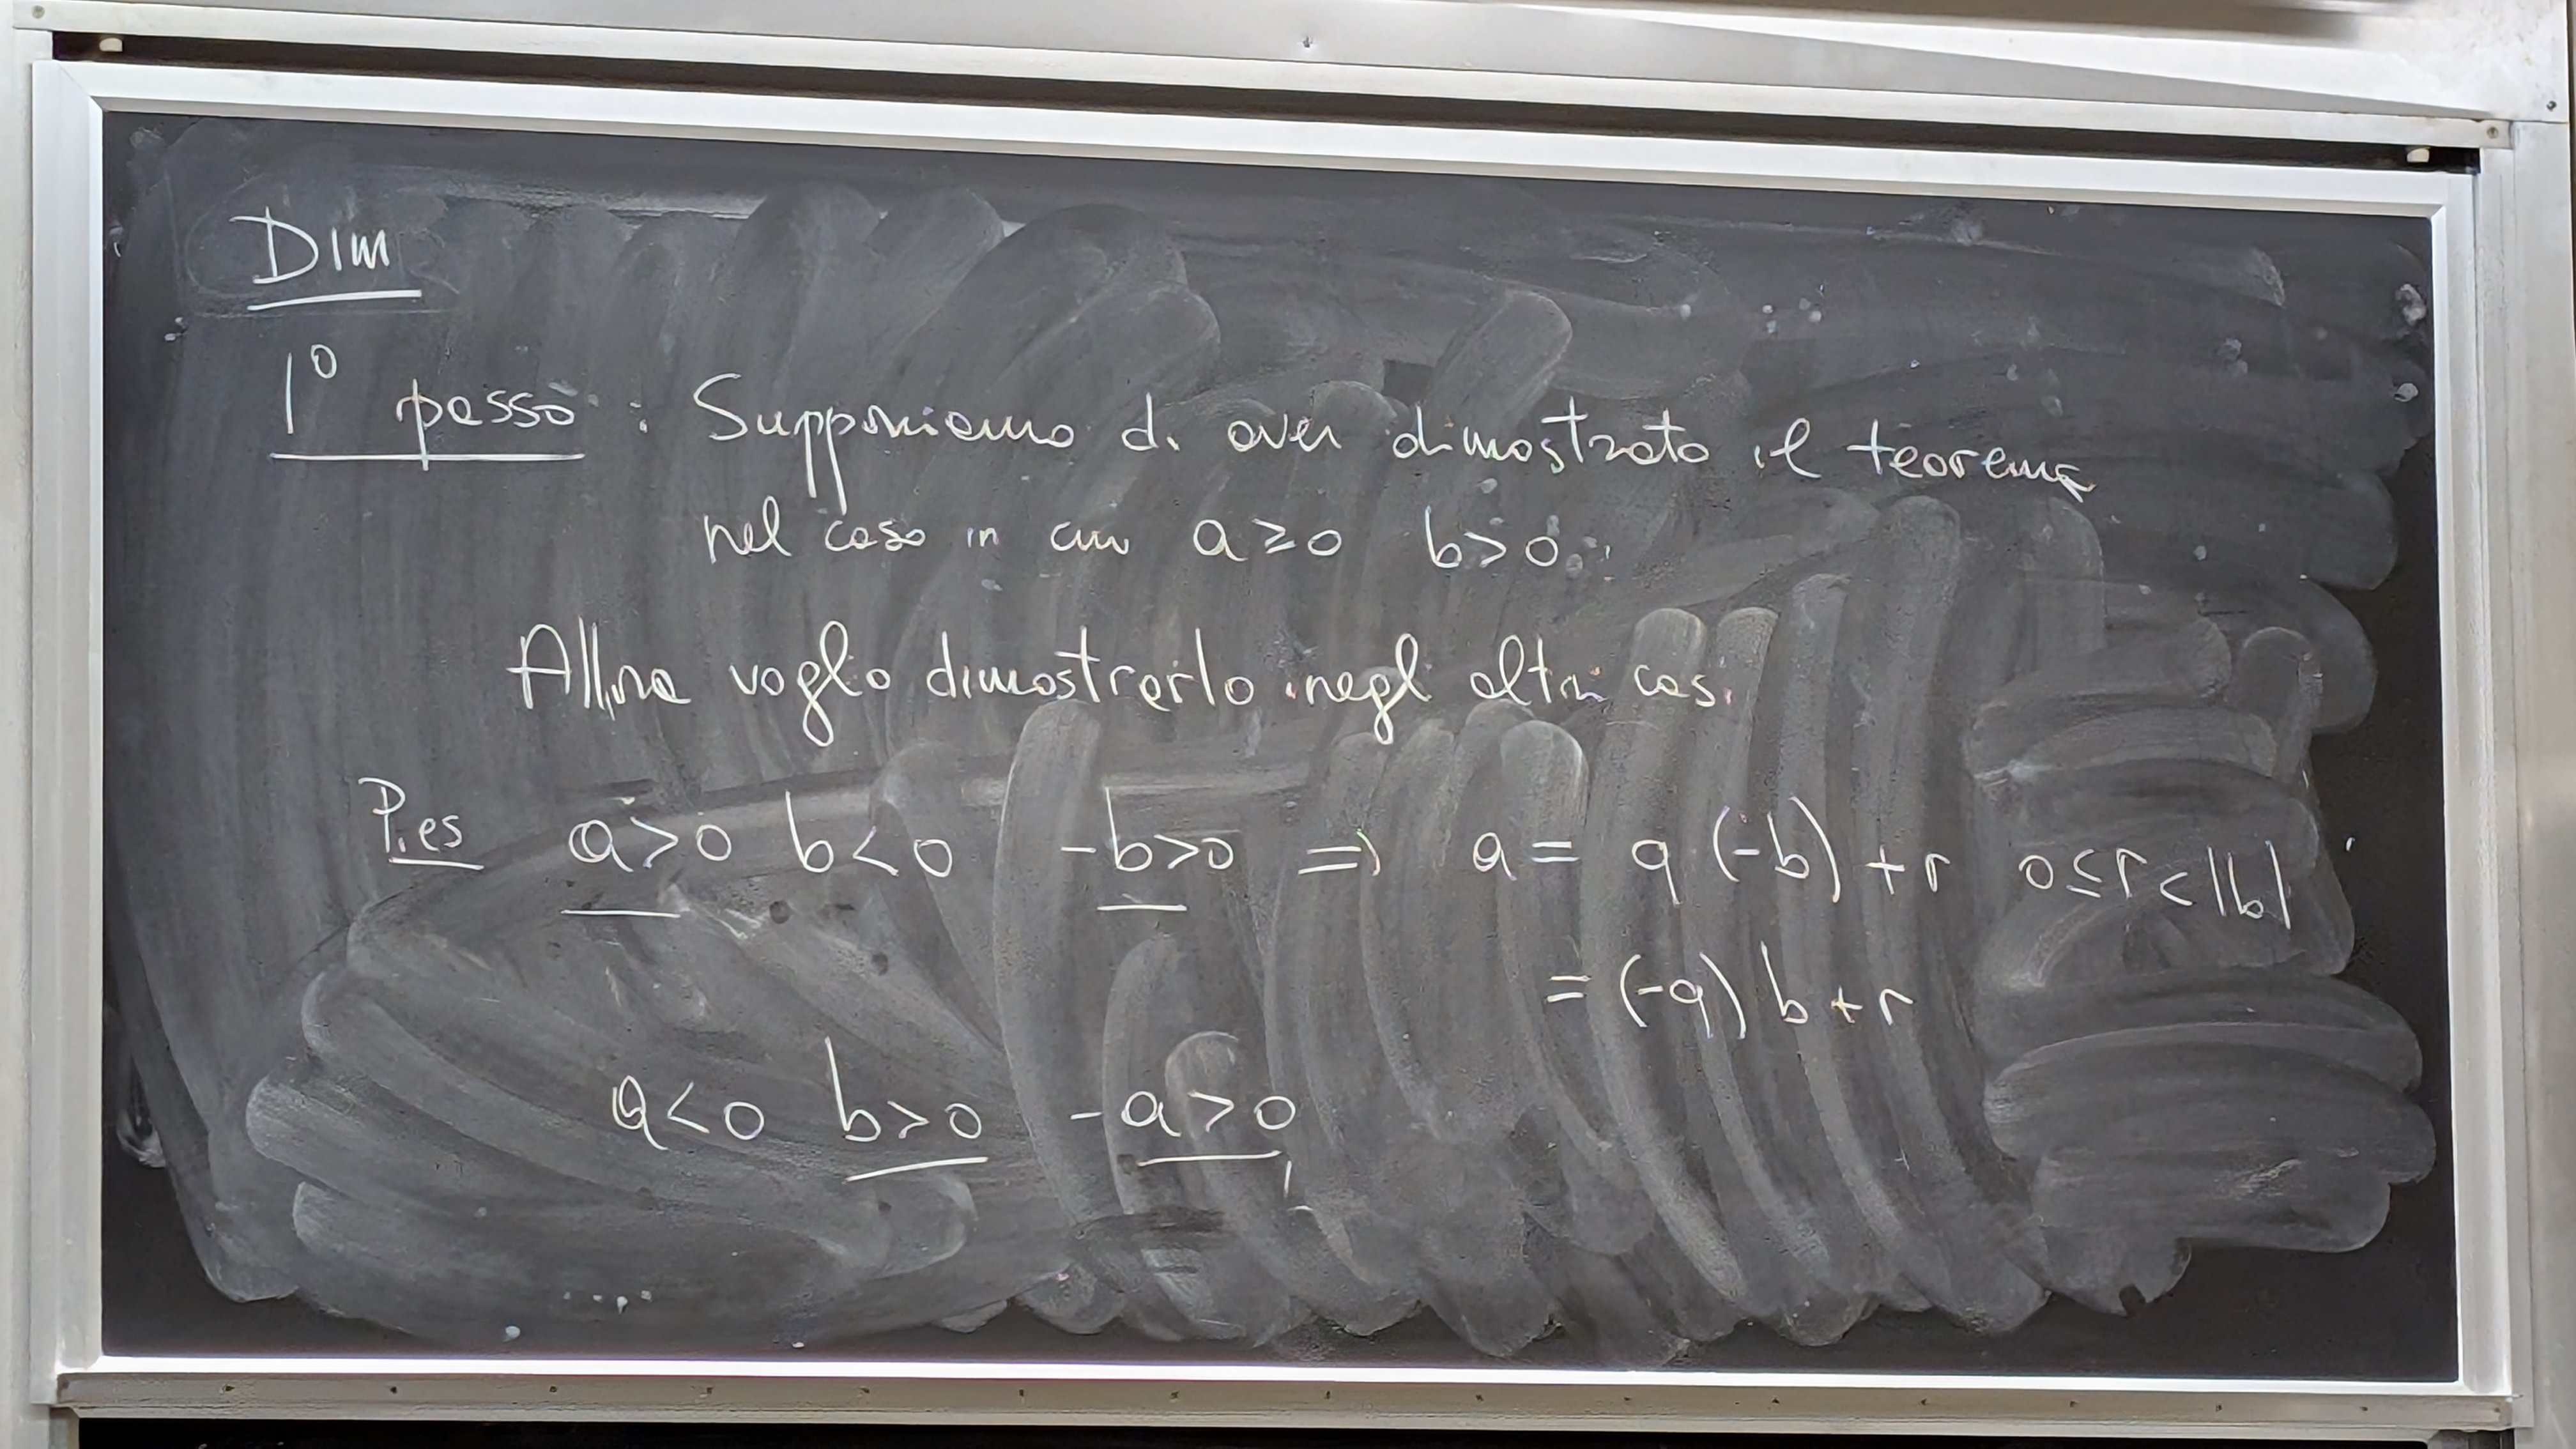 Dim
1° passo : Supponiamo di aver dimostrato il teorema
nel caso in cui a ≥ 0 b > 0.
Allora voglio dimostrarlo negli altri casi
P.es a > 0 b < 0 -b > 0 => a = q (-b) + r 0 ≤ r < |b|
= (-q) b + r
a < 0 b > 0 -a > 0